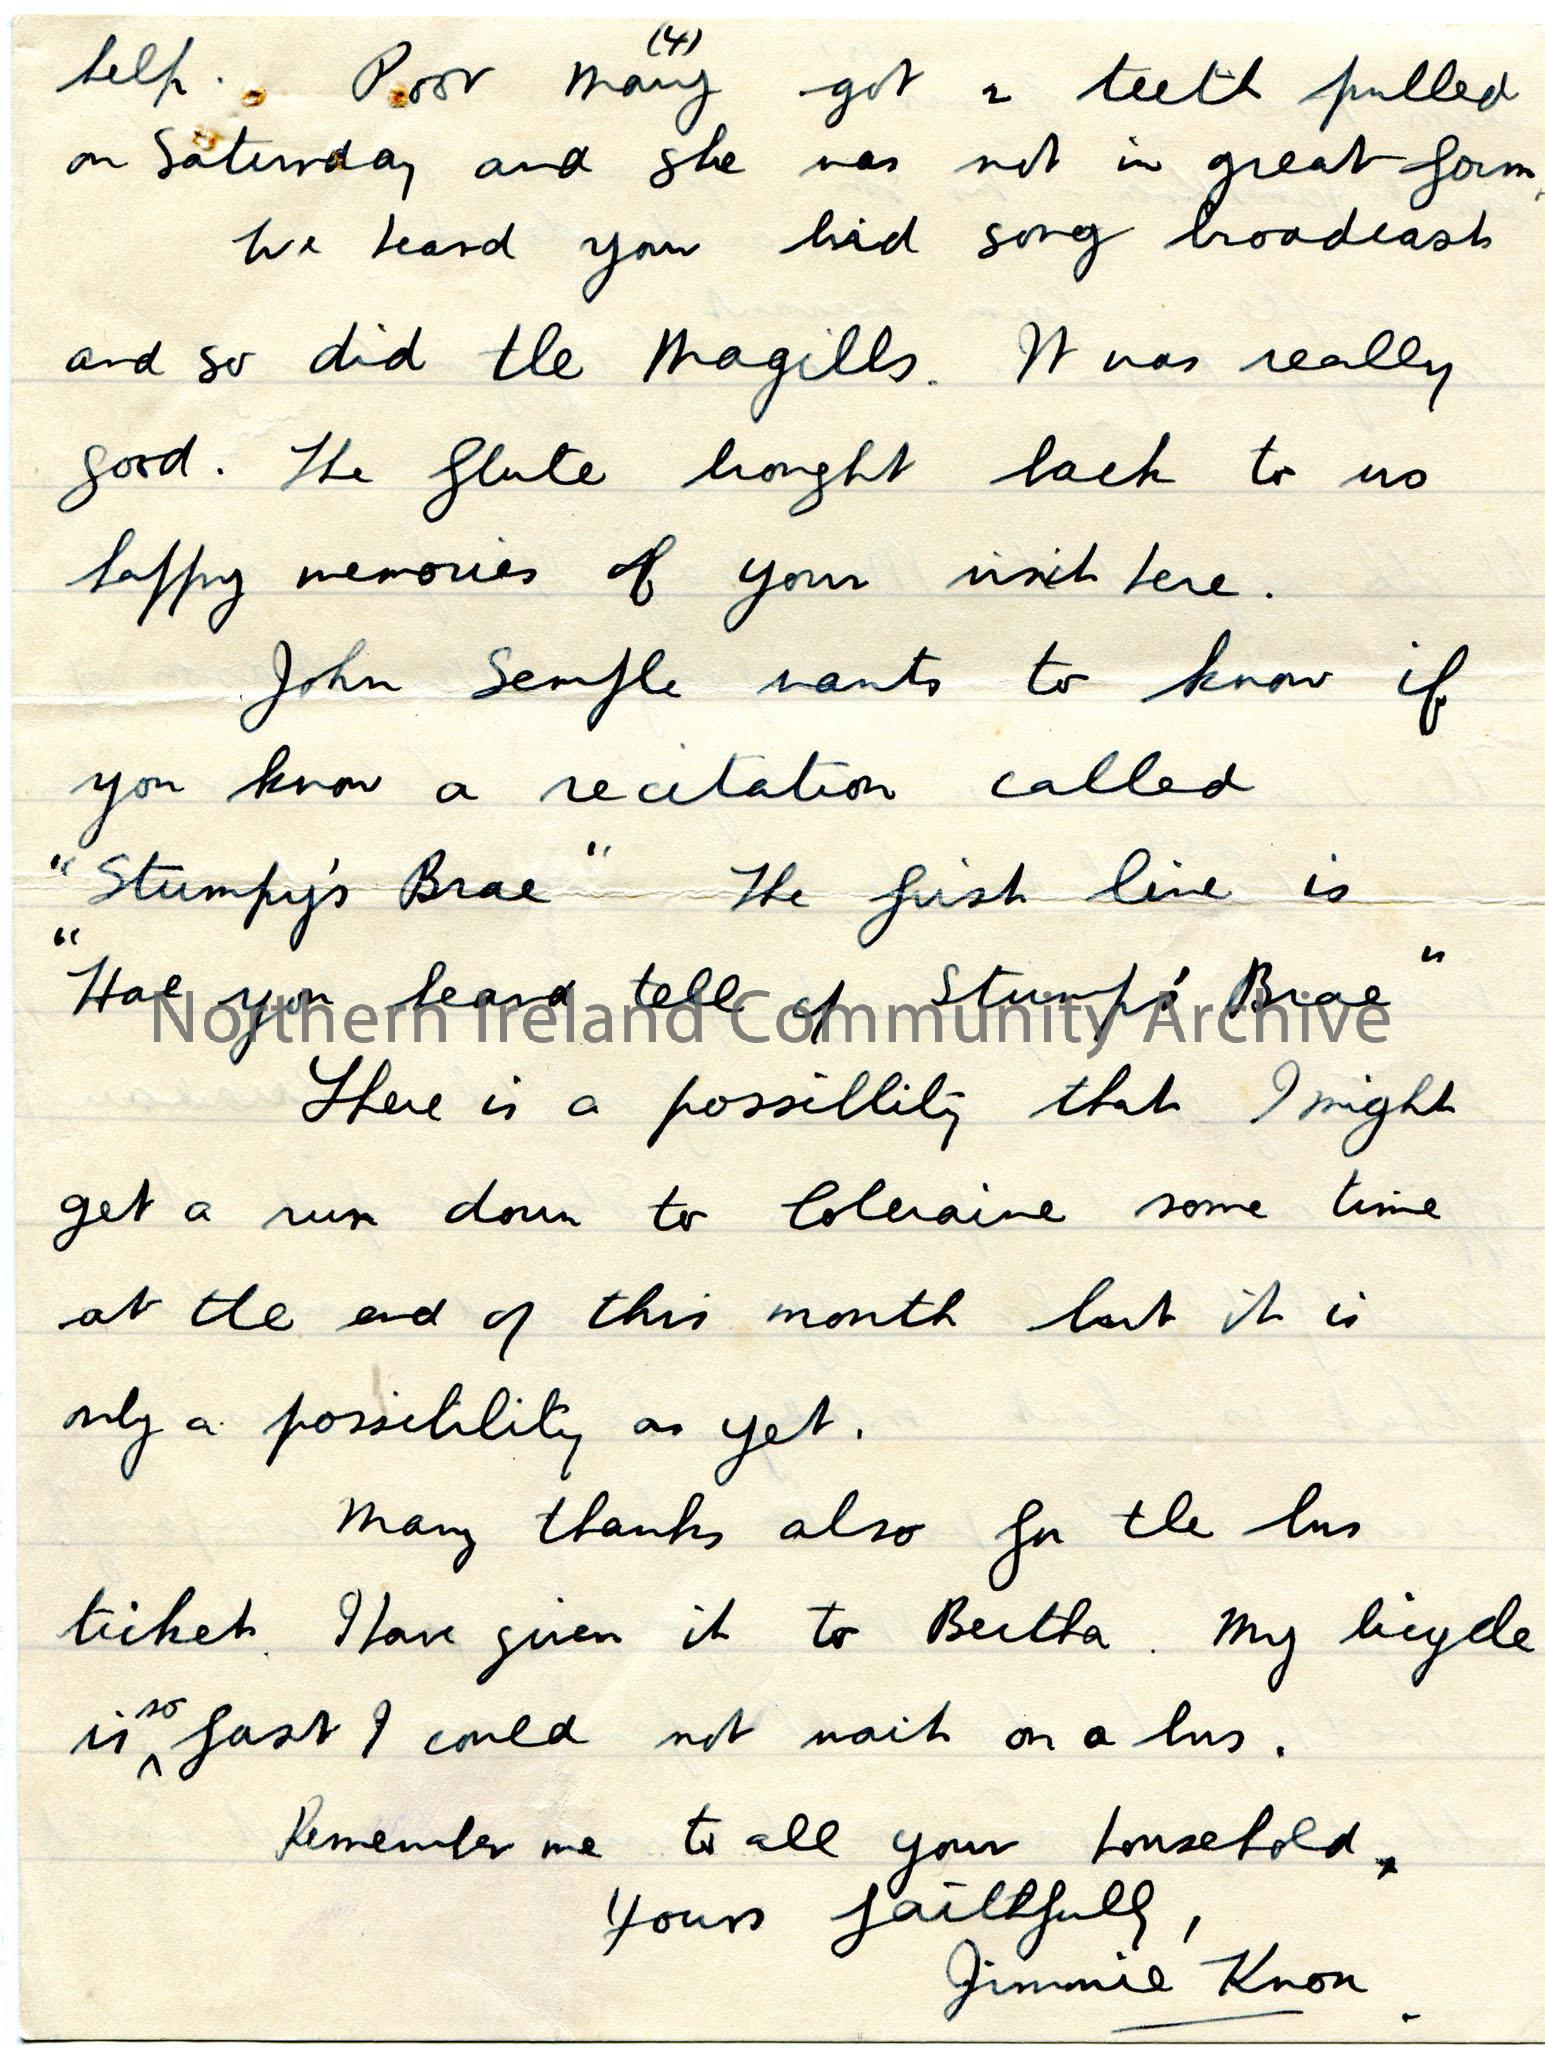 (4)
help. Poor Mary got 2 teeth pulled
on Saturday and she was not in great form,
We heard your bird song broadcast
and so did the Magills. It was really
good. The flute brought back to us
happy memories of your visit here.
John Semple wants to know if
you know a recitation called
"Stumpy's Brae" The first line is
"Hae you heard tell of Stumpy's Brae"
There is a possibility that I might
get a run down to Coleraine some time
at the end of this month but it is
only a possibility as yet.
Many thanks also for the bus
ticket. I have given it to Bertha. My bicycle
is so fast I could not wait on a bus.
Remember me to all your household.
Yours faithfully,
Jimmie Knox.
Northern Ireland Community Archive